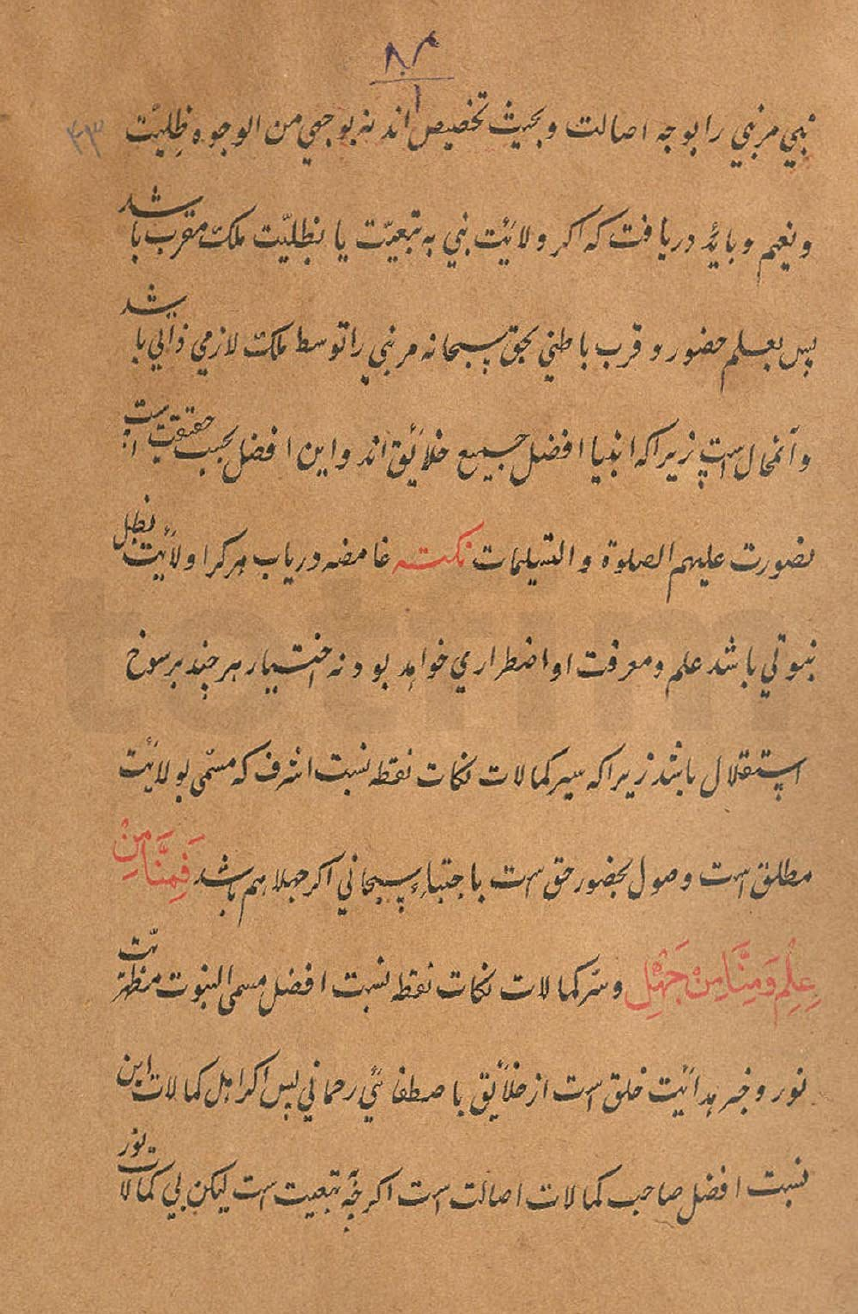 نبي مرنبي را بوجه اصالت و بحيث تخصيص اند نه بوجهي من الوجوه ظِلّيت
ونعيم و بايد دريافت كه اكر ولائيت نبي به تبعيّت يا بظليّت ملك مقرب باشد
پس بعلم حضور و قرب باطني بحق سبحانه مر نبي را توسط ملك لازمي ذاتي باشد
و آنمحال است زيراكه انبيا افضل جميع خلائق اند و اين افضل بحسب حقيقت است
بصورت عليهم الصلوة والتسليمات نكته غامضه درياب هركرا ولائيت بظل
نبوتي باشد علم ومعرفت او اضطراري خواهد بود نه اختيار هرچند برسوخ
استقلال باشد زيراكه سير كمالات نكات نقطه نسبت اشرف كه مسمّى بولائيت
مطلق است وصول بحضور حق است باجتباء سبحاني اكر جهلا هم باشد فَمِنَّا مِنْ
عِلِم وَمِنَّا مِنْ جَهْلِ و سرّ كمالات نكات نقطه نسبت افضل مسمى النبوت مظهريّت
نور و خبر هدائيت خلق است از خلائق باصطفائي رحماني پس اكر اهل كمالات اين
نسبت افضل صاحب كمالات اصالت است اكرچه تبعيت است ليكن بي كمالات نور